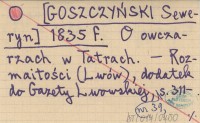 [GOSZCZYŃSKI Sewe-
ryn] 1835 f. O owcza-
rzach w Tatrach. – Roz-
maitości (Lwów), dodatek
do Gazety Lwowskiej, s. 311–
nr 39,